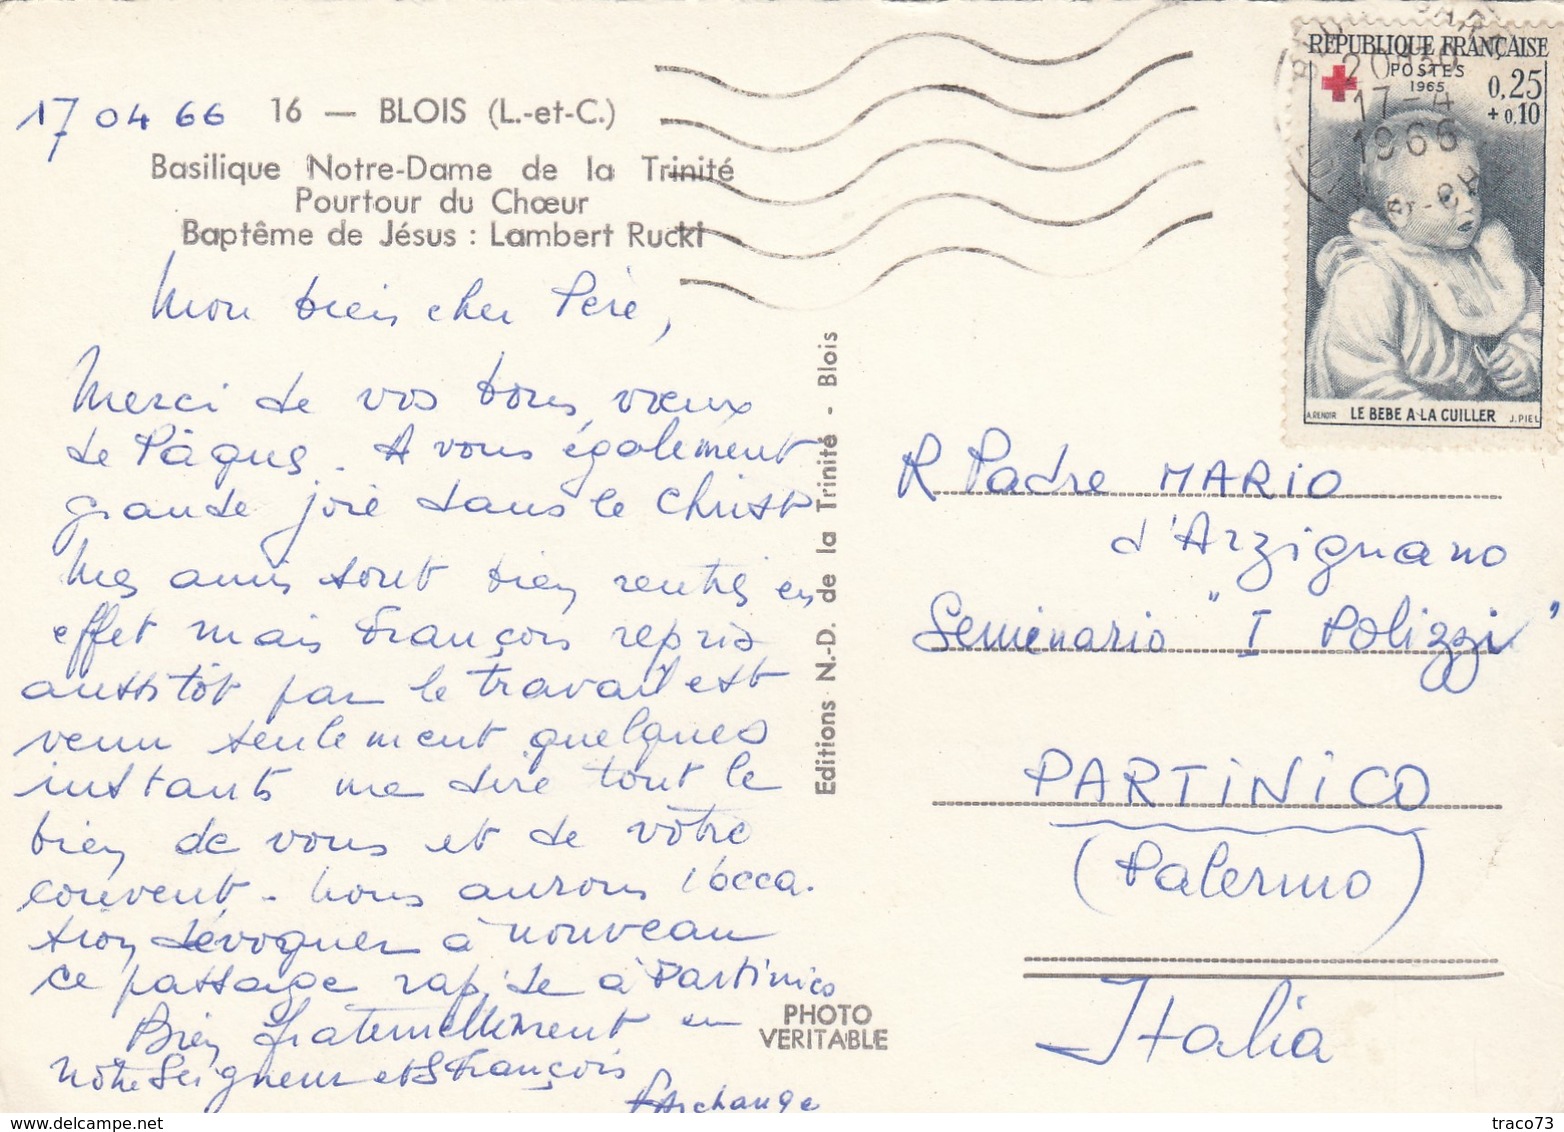 17 04 66
16 — BLOIS (L.-et-C.)
Basilique Notre-Dame de la Trinité
Pourtour du Chœur
Baptême de Jésus : Lambert Rucki
Mon bien cher Père,
Merci de vos bons vœux
de Pâques. A vous également
grande joie dans le Christ
Mes amis sont bien rentrés en
effet mais François repris
aussitôt par le travail est
venu seulement quelques
instants me dire tout le
bien de vous et de votre
couvent. Nous aurons l'occa.
sion d'évoquer à nouveau
ce passage rapide à Partinico
Bien fraternellement en
notre Seigneur et S François
Archange
Editions N.-D. de la Trinité - Blois
PHOTO
VERITABLE
REPUBLIQUE FRANÇAISE
POSTES
1965
0,25
+ 0,10
17-4
1966
A. RENOIR LE BEBE A LA CUILLER J. PIEL
R Padre MARIO
d'Arzignano
Seminario "I Polizzi"
PARTINICO
(Palermo)
Italia
traco73